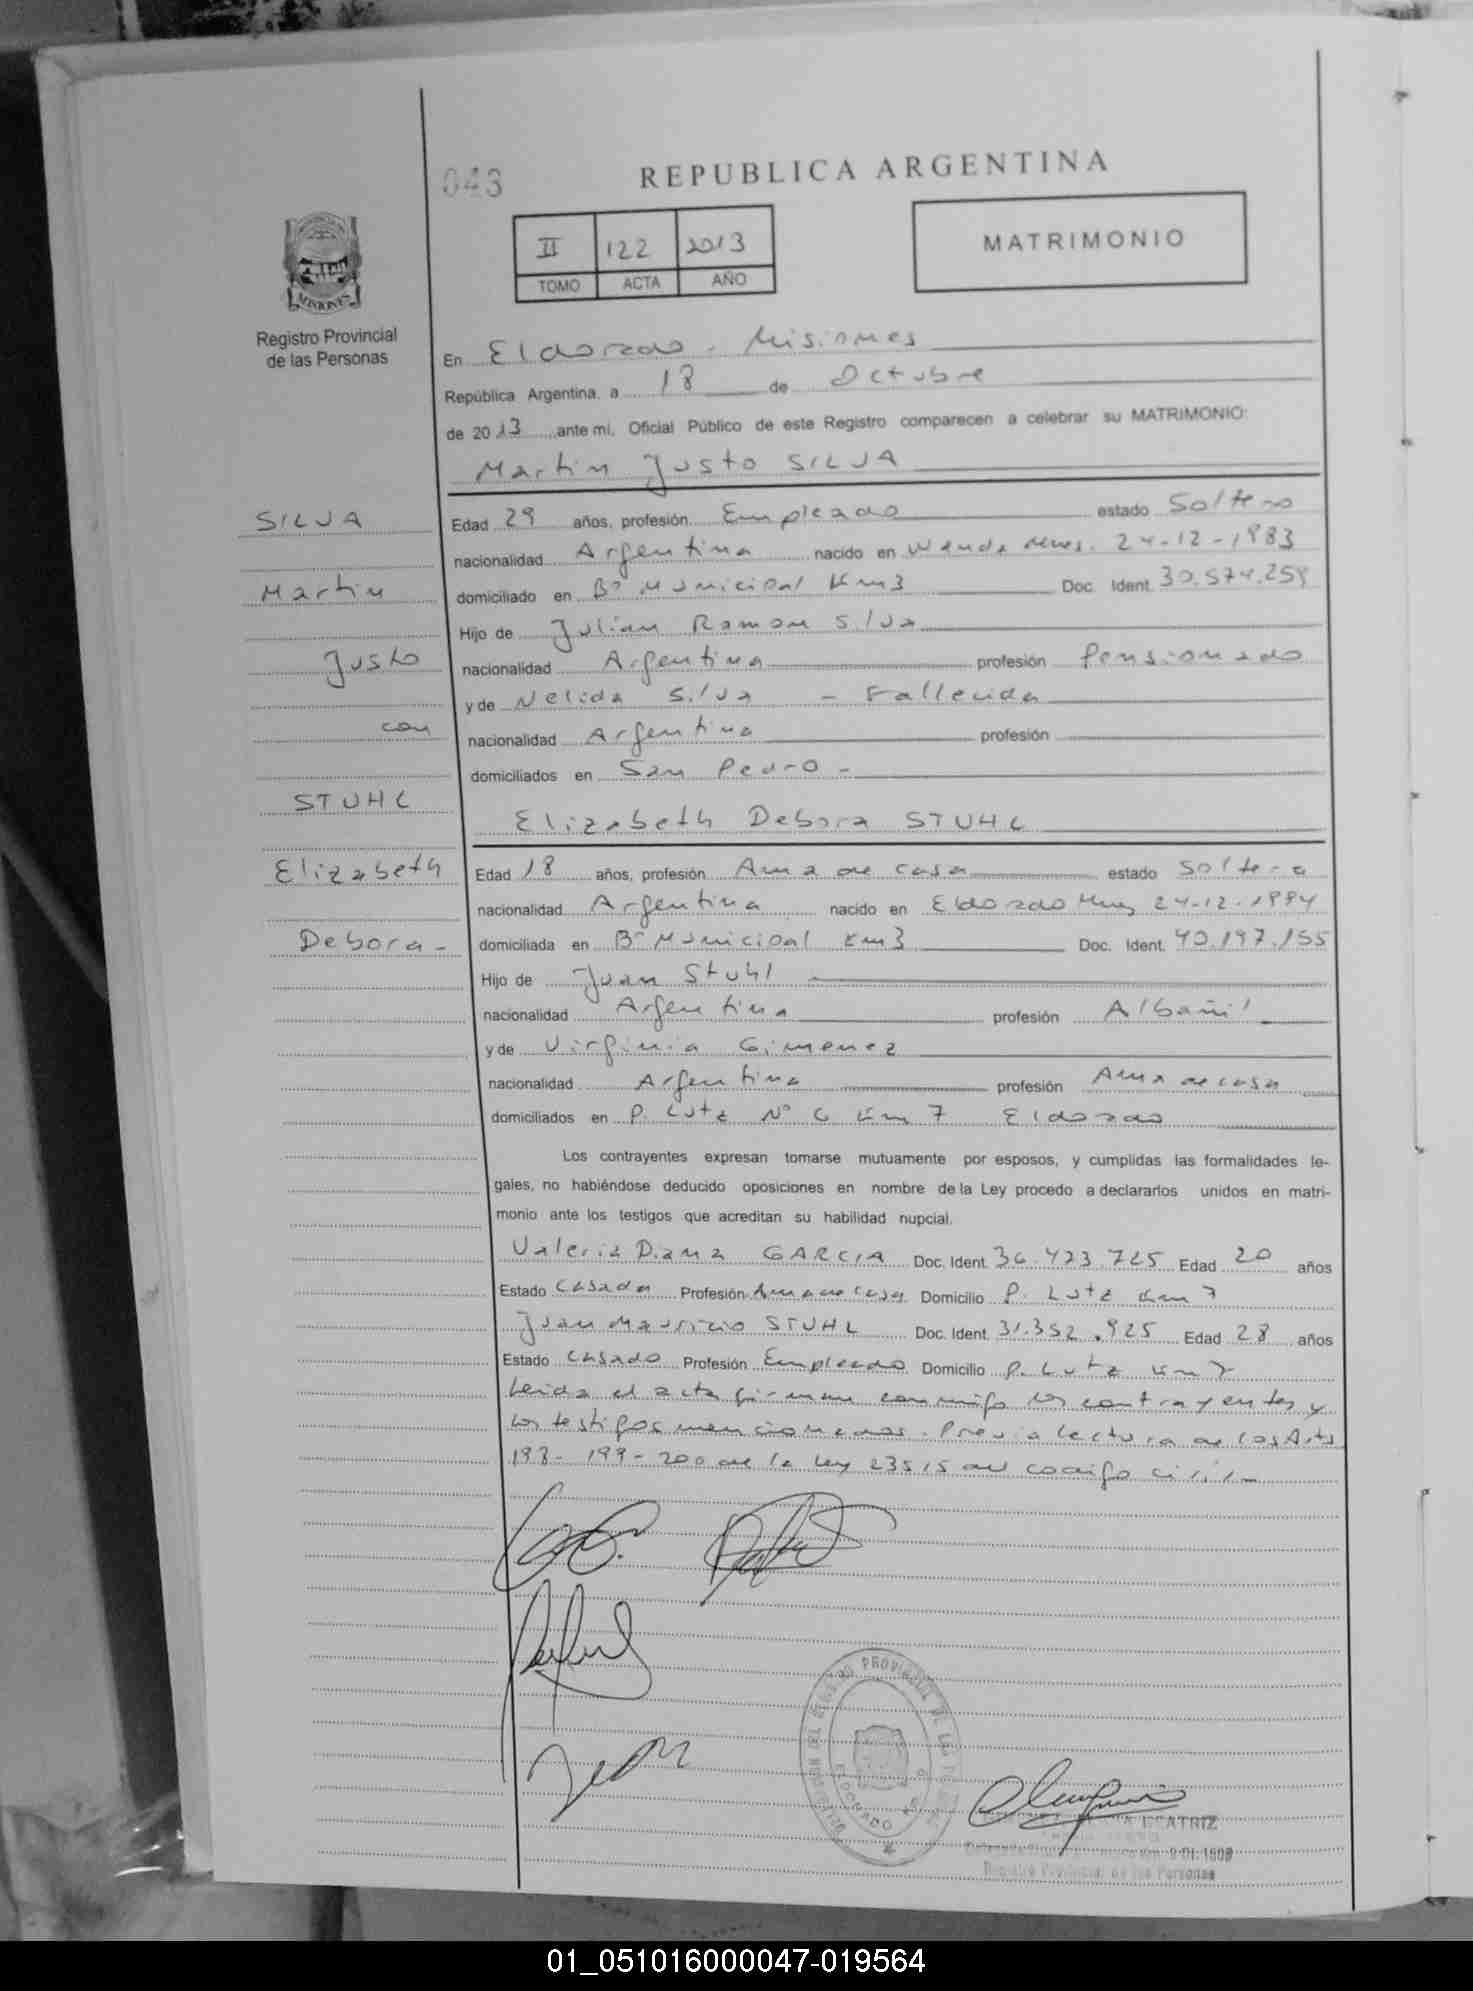 043
REPUBLICA ARGENTINA
II 122 2013
TOMO ACTA AÑO
MATRIMONIO
MISIONES
Registro Provincial
de las Personas
En Eldorado - Misiones
República Argentina, a 18 de Octubre
de 2013 ante mi, Oficial Público de este Registro comparecen a celebrar su MATRIMONIO:
Martin Justo SILVA
SILVA
Martin
Justo
con
STUHL
Elizabeth
Debora -
Edad 29 años, profesión Empleado estado Soltero
nacionalidad Argentina nacido en Wanda Mnes. 24-12-1983
domiciliado en Bº Municipal Km3 Doc. Ident. 30.574.259
Hijo de Julian Ramon Silva
nacionalidad Argentina profesión Pensionado
y de Nelida Silva - Fallecida
nacionalidad Argentina profesión
domiciliados en San Pedro -
Elizabeth Debora STUHL
Edad 18 años, profesión Ama de casa estado Soltera
nacionalidad Argentina nacido en Eldorado Mnes 24-12-1994
domiciliada en Bº Municipal Km3 Doc. Ident. 40.197.155
Hijo de Juan Stuhl
nacionalidad Argentina profesión Albañil
y de Virginia Gimenez
nacionalidad Argentina profesión Ama de casa
domiciliados en P. Lutz Nº 6 Km 7 Eldorado
Los contrayentes expresan tomarse mutuamente por esposos, y cumplidas las formalidades le-
gales, no habiéndose deducido oposiciones en nombre de la Ley procedo a declararlos unidos en matri-
monio ante los testigos que acreditan su habilidad nupcial.
Valeria Diana GARCIA Doc. Ident. 36.473.725 Edad 20 años
Estado Casada Profesión Ama de casa Domicilio P. Lutz Km 7
Juan Mauricio STUHL Doc. Ident. 31.352.925 Edad 28 años
Estado Casado Profesión Empleado Domicilio P. Lutz Km 7
Leida el acta firman conmigo los contrayentes y
los testigos mencionados. Previa lectura de los Arts
198 - 199 - 200 de la ley 23515 del codigo civil -
ELDORADO
BEATRIZ
Registro Provincial de las Personas
01_051016000047-019564